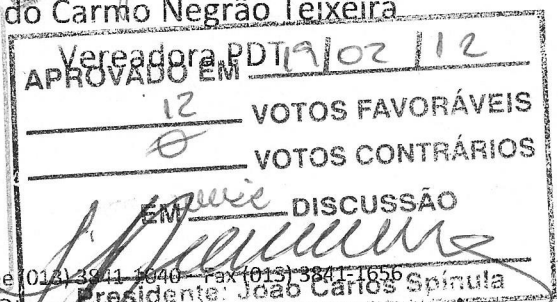 do Carmo Negrão Teixeira
Vereadora PDT
APROVADO EM 19/02/12
12 VOTOS FAVORÁVEIS
0 VOTOS CONTRÁRIOS
EM DISCUSSÃO
e (013) 3841-1040 – Fax (013) 3841-1656
Presidente: João Carlos Spinula